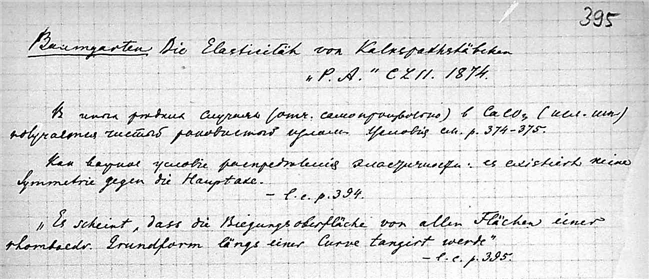 395
Baumgarten Die Elasticität von Kalkspathstäbchen
"P. A." CLII. 1874.
В иных редких случаях (отч. самопроизвольно) в CaCO₃ (исл. шп)
получается чистый раковистый излом. Условия см. p. 374-375.
Как важное условие распределения эластичности: es existiert keine
Symmetrie gegen die Hauptaxe.
— l. c. p. 394.
"Es scheint, dass die Biegungsoberfläche von allen Flächen einer
rhomboedr. Grundform längs einer Curve tangirt werde"
— l. c. p. 395.